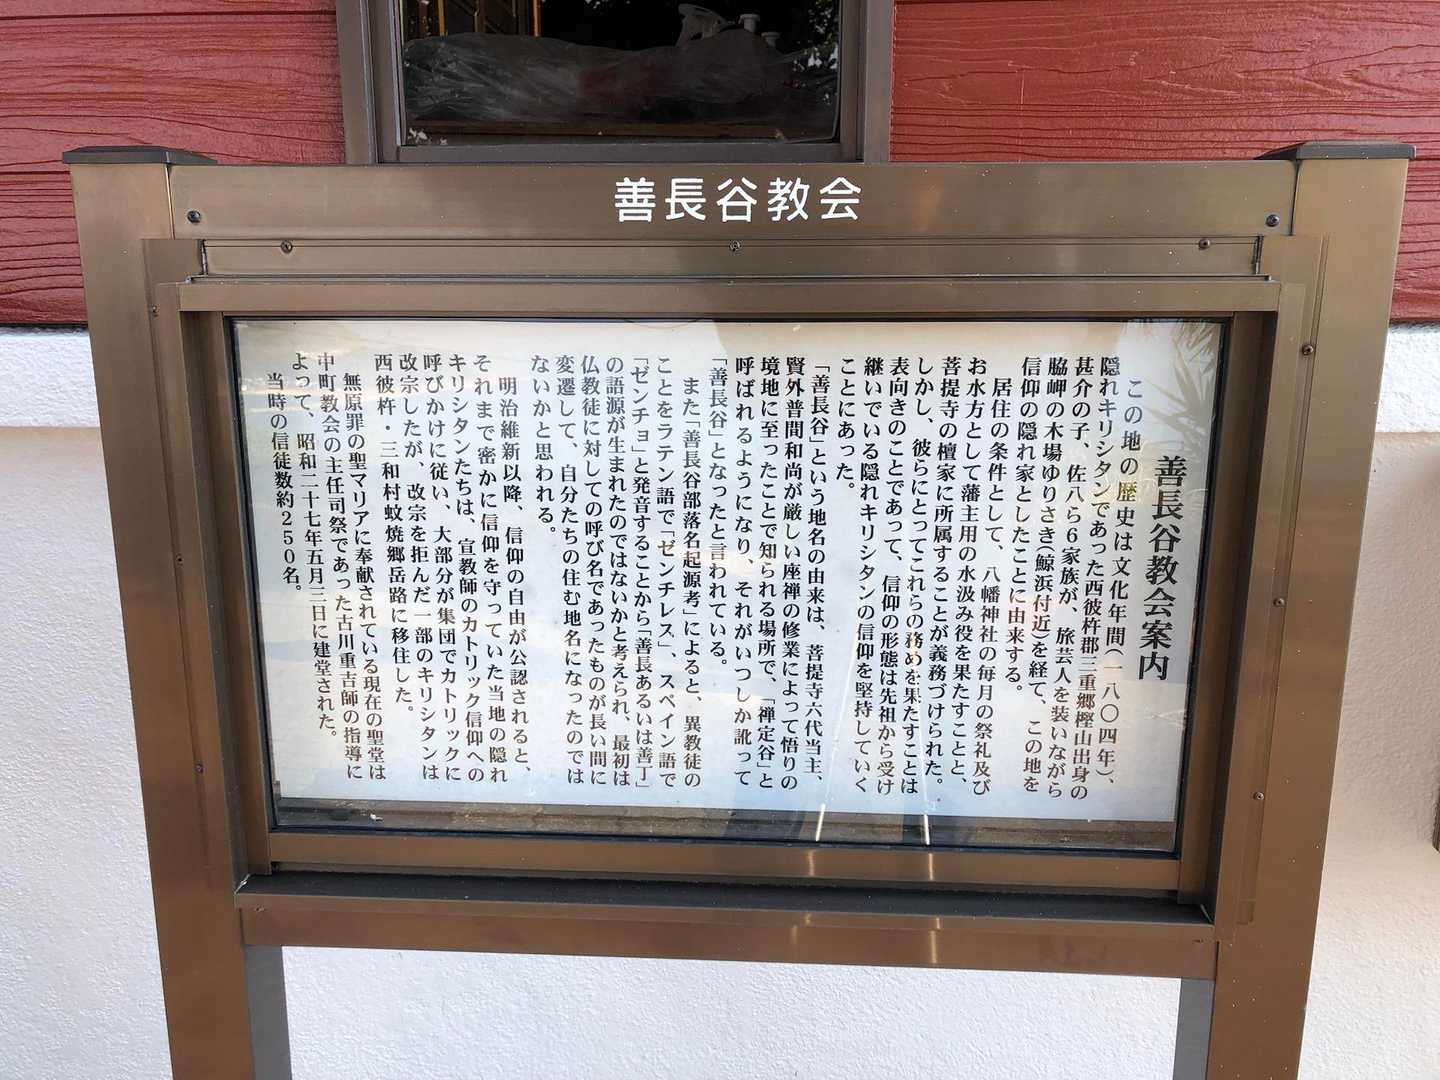 善長谷教会
善長谷教会案内
この地の歴史は文化年間(一八〇四年)、
隠れキリシタンであった西彼杵郡三重郷樫山出身の
甚介の子、佐八ら6家族が、旅芸人を装いながら
脇岬の木場ゆりさき(鯨浜付近)を経て、この地を
信仰の隠れ家としたことに由来する。
居住の条件として、八幡神社の毎月の祭礼及び
お水方として藩主用の水汲み役を果たすことと、
菩提寺の檀家に所属することが義務づけられた。
しかし、彼らにとってこれらの務めを果たすことは
表向きのことであって、信仰の形態は先祖から受け
継いでいる隠れキリシタンの信仰を堅持していく
ことにあった。
「善長谷」という地名の由来は、菩提寺六代当主、
賢外普間和尚が厳しい座禅の修業によって悟りの
境地に至ったことで知られる場所で、「禅定谷」と
呼ばれるようになり、それがいつしか訛って
「善長谷」となったと言われている。
また「善長谷部落名起源考」によると、異教徒の
ことをラテン語で「ゼンチレス」、スペイン語で
「ゼンチョ」と発音することから「善長あるいは善丁」
の語源が生まれたのではないかと考えられ、最初は
仏教徒に対しての呼び名であったものが長い間に
変遷して、自分たちの住む地名になったのでは
ないかと思われる。
明治維新以降、信仰の自由が公認されると、
それまで密かに信仰を守っていた当地の隠れ
キリシタンたちは、宣教師のカトリック信仰への
呼びかけに従い、大部分が集団でカトリックに
改宗したが、改宗を拒んだ一部のキリシタンは
西彼杵・三和村蚊焼郷岳路に移住した。
無原罪の聖マリアに奉献されている現在の聖堂は
中町教会の主任司祭であった古川重吉師の指導に
よって、昭和二十七年五月三日に建堂された。
当時の信徒数約250名。